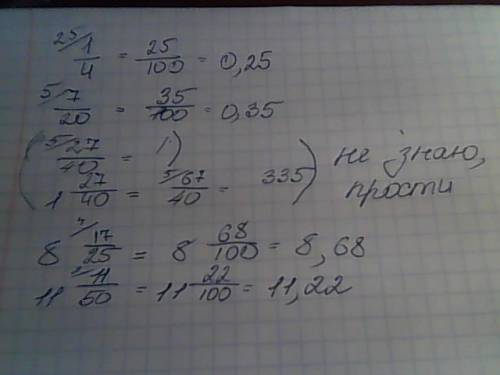 25/ 1/4 = 25/100 = 0,25
5/ 7/20 = 35/100 = 0,35
( 5/ 27/40 = 1)
1 27/40 = 5/ 67/40 = 335 ) не знаю, прости
8 4/ 17/25 = 8 68/100 = 8,68
11 2/ 11/50 = 11 22/100 = 11,22